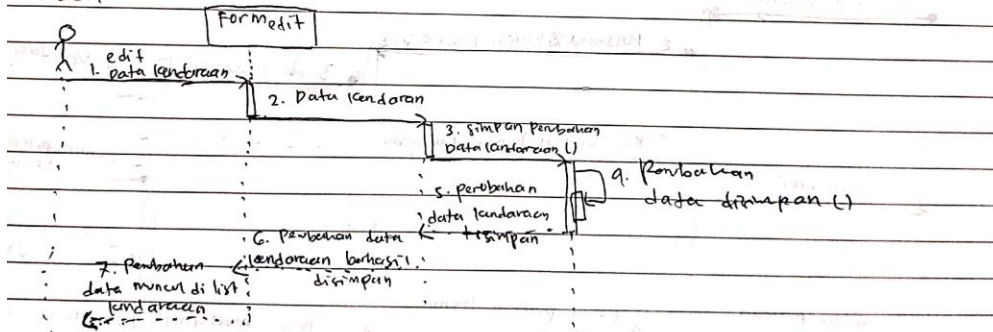 Form edit
edit
1. Data kendaraan
2. Data kendaran
3. simpan perubahan
Data kendaraan ()
9. Perubahan
data disimpan ()
5. perubahan
data kendaraan
tersimpan
6. Perubahan data
kendaraan berhasil
disimpan
7. Perubahan
data muncul di list
kendaraan